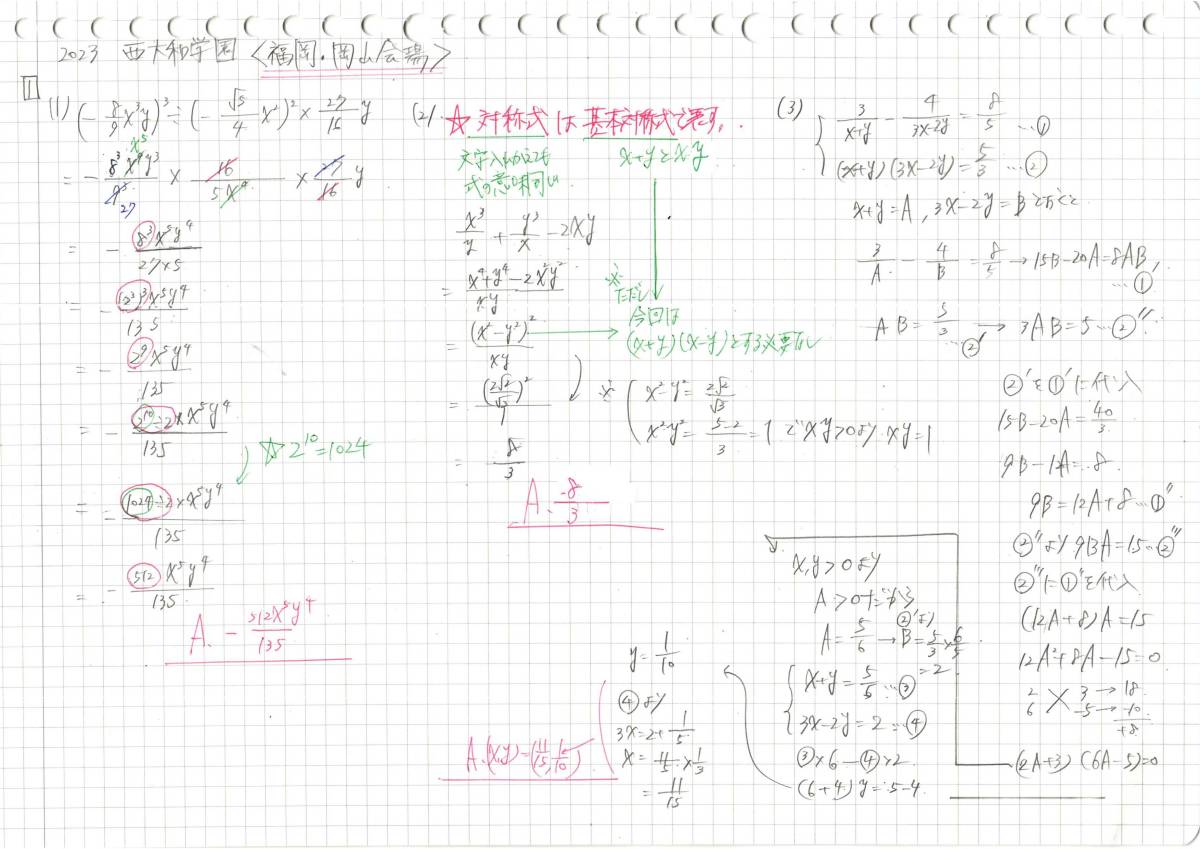 2023 西大和学園 <福岡・岡山会場>
1
(1) (-8/9 x³y)³ ÷ (-√5/4 x²)² × 27/16 y
x⁵
= - 8³x⁹y³/9³ × 16/5x⁴ × 27/16 y
27
= - 8³x⁵y⁴/27×5
= - (2³)³x⁵y⁴/135
= - 2⁹x⁵y⁴/135
= - 2¹⁰÷2×x⁵y⁴/135
☆ 2¹⁰=1024
= - 1024÷2×x⁵y⁴/135
= - 512x⁵y⁴/135
A. - 512x⁵y⁴/135
(2) ☆ 対称式は基本対称式で表す。
文字入れかえても
式の意味同じ
x+yとxy
x³/y + y³/x - 2xy
= x⁴+y⁴-2x²y²/xy
= (x²-y²)²/xy
※ただし
今回は
(x+y)(x-y)とする必要なし
= (2√2/√3)²/1
※ { x²-y²=2√2/√3
x²y²=5-2/3=1 で xy>0より xy=1
= 8/3
A. 8/3
(3) { 3/x+y - 4/3x-2y = 8/5 …①
(x+y)(3x-2y)=5/3 …②
x+y=A, 3x-2y=Bとおくと
3/A - 4/B = 8/5 → 15B-20A=8AB …①'
AB=5/3 …②' → 3AB=5 …②''
②'を①'に代入
15B-20A=40/3
9B-12A=8
9B=12A+8 …①''
②''より 9BA=15 …②''
②''に①''を代入
(12A+8)A=15
12A²+8A-15=0
2 3 → 18
6 -5 → -10
+8
(2A+3)(6A-5)=0
x,y>0より
A>0だから
A=5/6 → ②'より B=5/3×6/5
=2
{ x+y=5/6 …③
3x-2y=2 …④
③×6-④×2
(6+4)y=5-4
y=1/10
④より
3x=2+1/5
x=11/5×1/3
=11/15
A. (x,y)=(11/15, 1/10)